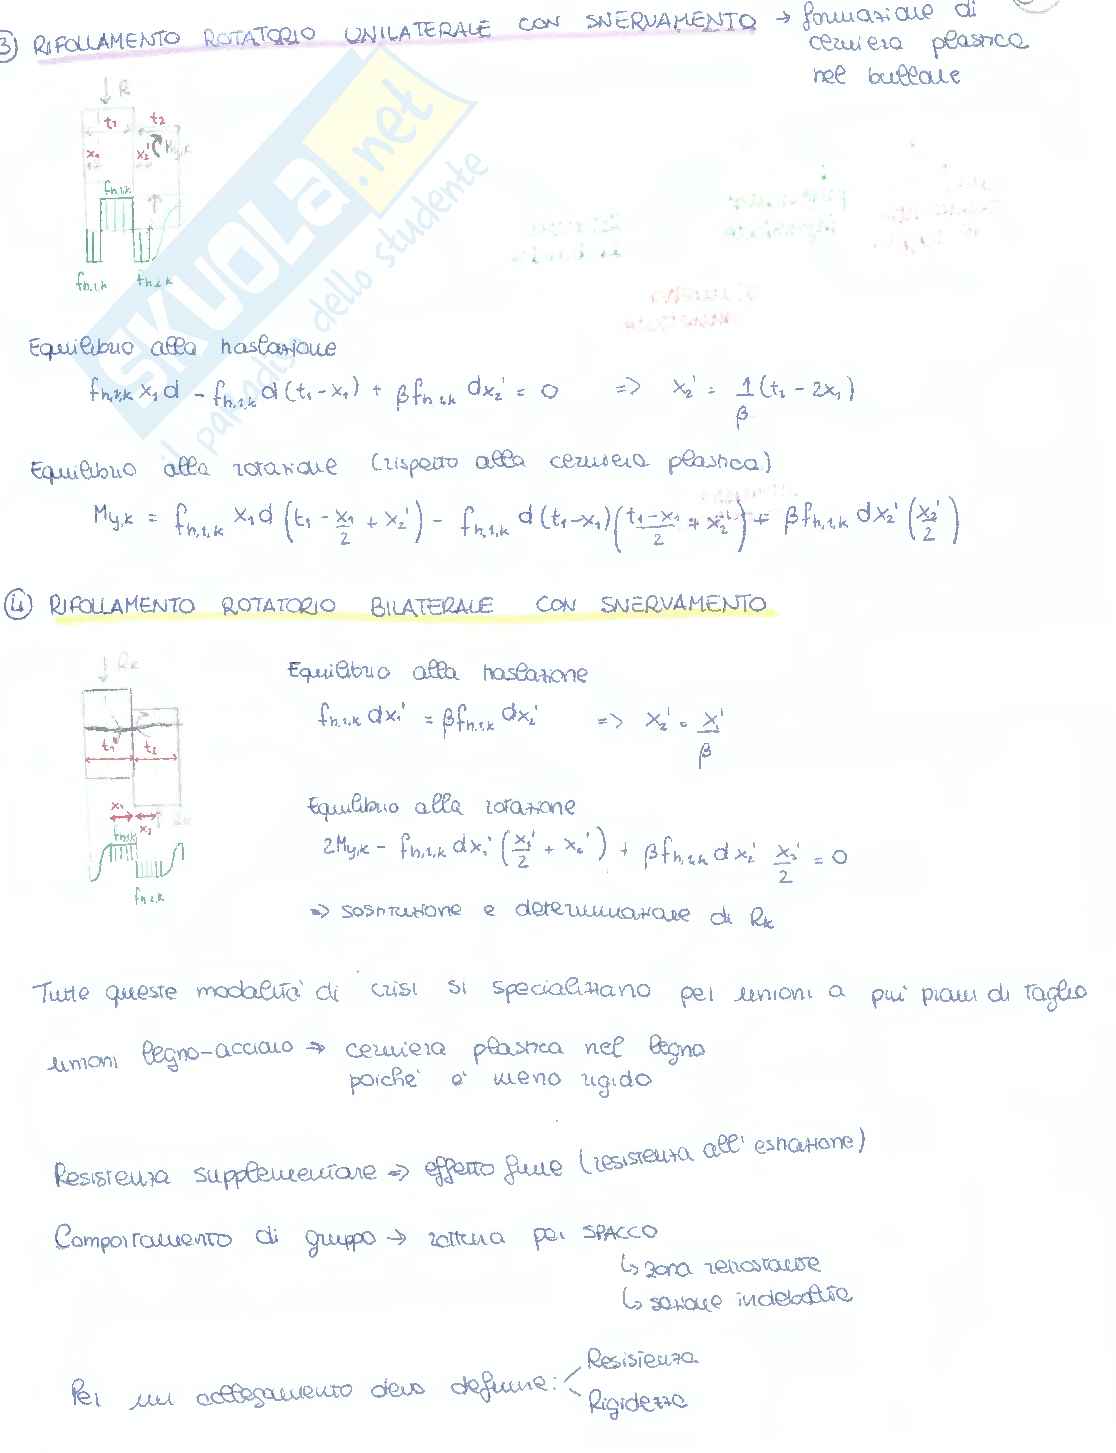 3) RIFOLLAMENTO ROTATORIO UNILATERALE CON SNERVAMENTO → formazione di
cerniera plastica
nel bullone
R
t1 t2
x1 x2' My,k
fh,1,k
fh,1,k fh,2,k
SKUOLA.net
il paradiso dello studente
Equilibrio alla traslazione
fh,1,k x1 d - fh,1,k d (t1 - x1) + β fh,1,k d x2' = 0 => x2' = 1/β (t1 - 2x1)
Equilibrio alla rotazione (rispetto alla cerniera plastica)
My,k = fh,1,k x1 d (t1 - x1/2 + x2') - fh,1,k d (t1-x1) ((t1-x1)/2 + x2') + β fh,1,k d x2' (x2'/2)
4) RIFOLLAMENTO ROTATORIO BILATERALE CON SNERVAMENTO
Rk
t1 t2
x1
x2
fh,1,k
fh,2,k
Equilibrio alla traslazione
fh,1,k d x1' = β fh,1,k d x2' => x2' = x1'/β
Equilibrio alla rotazione
2My,k - fh,1,k d x1' (x1'/2 + x2') + β fh,1,k d x2' x2'/2 = 0
=> sostituzione e determinazione di Rk
Tutte queste modalità di crisi si specializzano per unioni a più piani di taglio
unioni legno-acciaio => cerniera plastica nel legno
poiché è meno rigido
Resistenza supplementare => effetto fune (resistenza all'estrazione)
Comportamento di gruppo → rottura per SPACCO
↳ zona tensostante
↳ sezione indebolita
Per un collegamento devo definire: Resistenza
Rigidezza